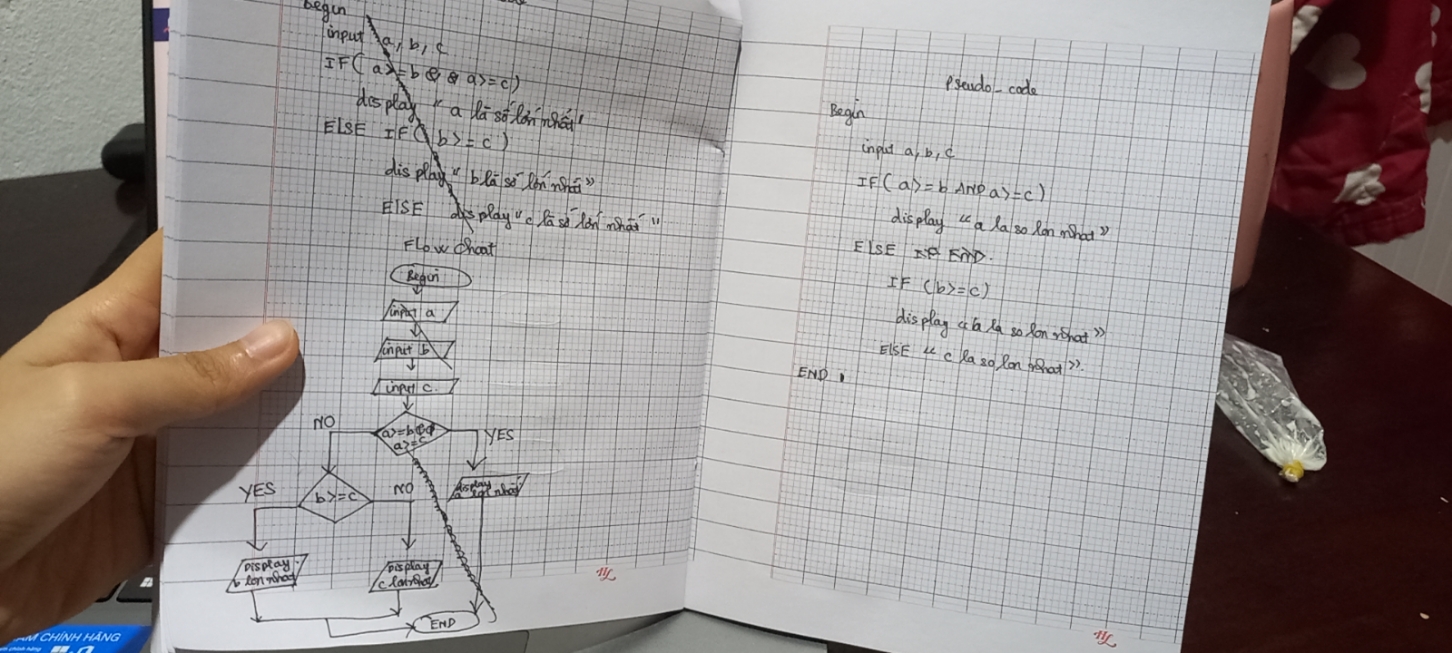 Begin
input a, b, c
IF( a>=b && a>=c)
display "a là số lớn nhất"
ELSE IF( b>=c)
display "b là số lớn nhất"
ELSE display "c là số lớn nhất"
Flow Chart
Begin
input a
input b
input c
a>=b &&
a>=c
NO
YES
display
a lon nhất
b>=c
YES
NO
Display
b lon nhat
Display
c lon nhat
END
Pseudo-code
Begin
input a, b, c
IF( a>=b AND a>=c)
display "a la so lon nhat"
ELSE IF END.
IF (b>=c)
display "b la so lon nhat"
ELSE "c la so lon nhat".
END
CHÍNH HÃNG